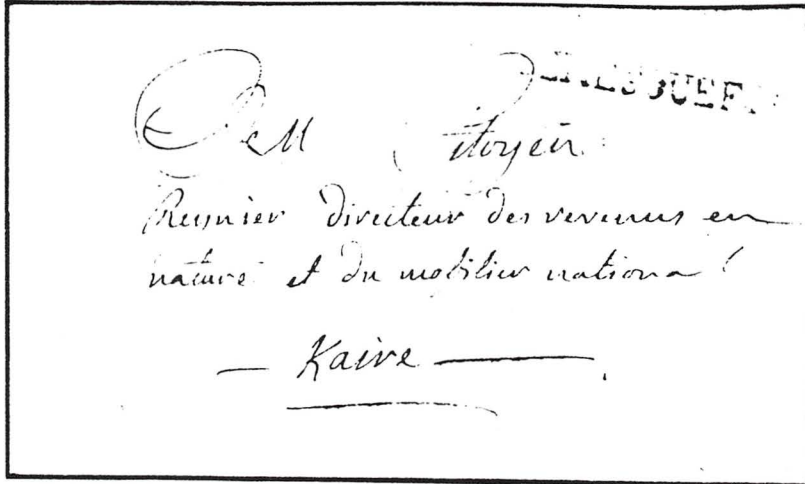 Citoyen
Reynier directeur des revenus en
nature et du mobilier national
— Kaire —